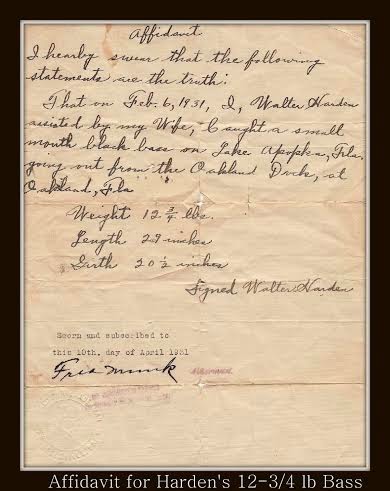 Affidavit
I hearby swear that the following
statements are the truth:
That on Feb. 6, 1931, I, Walter Harden
assisted by my Wife, Caught a small
mouth black bass on Lake Apopka, Fla.
going out from the Oakland Dock, at
Oakland, Fla
Weight 12 3/4 lbs.
Length 29 inches
Girth 20 1/2 inches
Signed Walter Harden
Scorn and subscribed to
this 10th. day of April 1931
Affidavit for Harden's 12-3/4 lb Bass